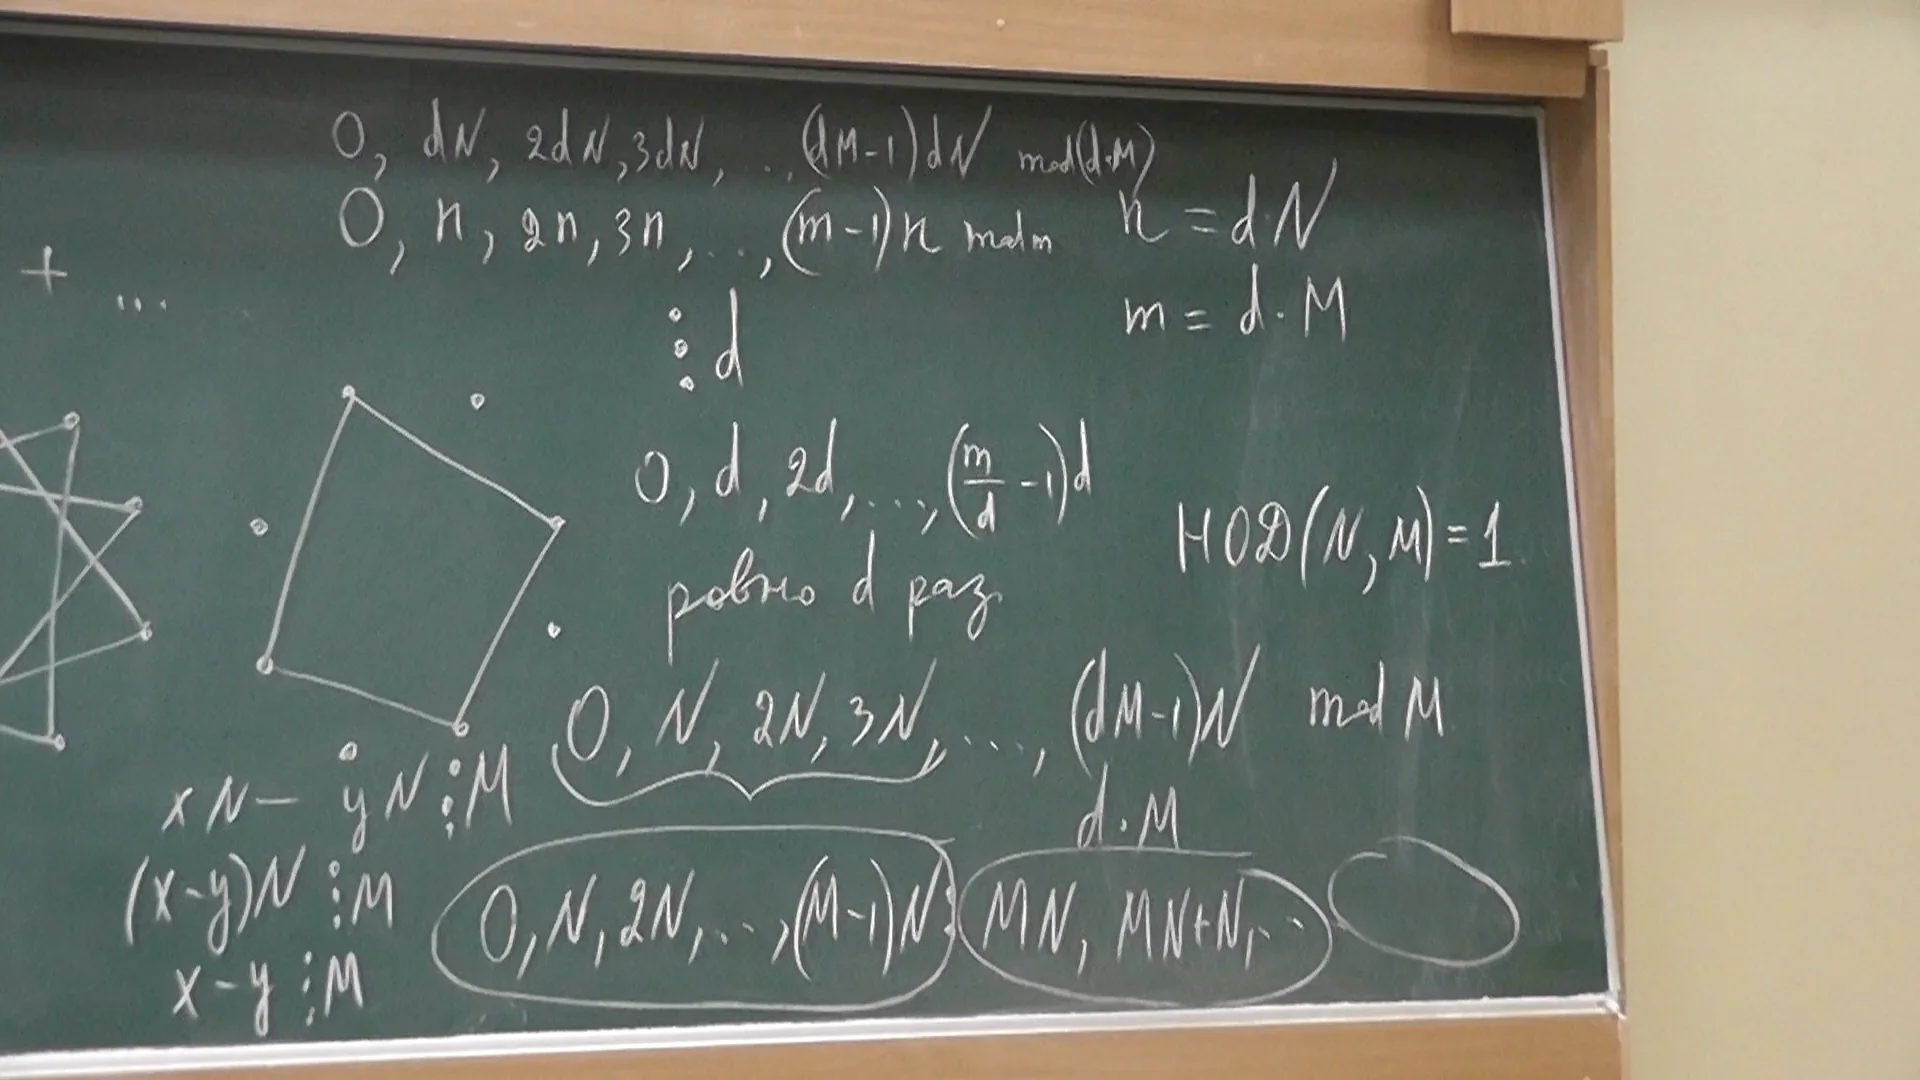 0, dN, 2dN, 3dN, ..., (dM-1)dN mod(d·M)
0, n, 2n, 3n, ..., (m-1)n mod m
n = d·N
+ ...
m = d·M
⋮ d
0, d, 2d, ..., (m/d -1)d
НОД(N, M)=1.
ровно d раз
0, N, 2N, 3N, ..., (dM-1)N mod M
xN - yN ⋮ M
d·M
(x-y)N ⋮ M
0, N, 2N, ..., (M-1)N; MN, MN+N, ...
x-y ⋮ M